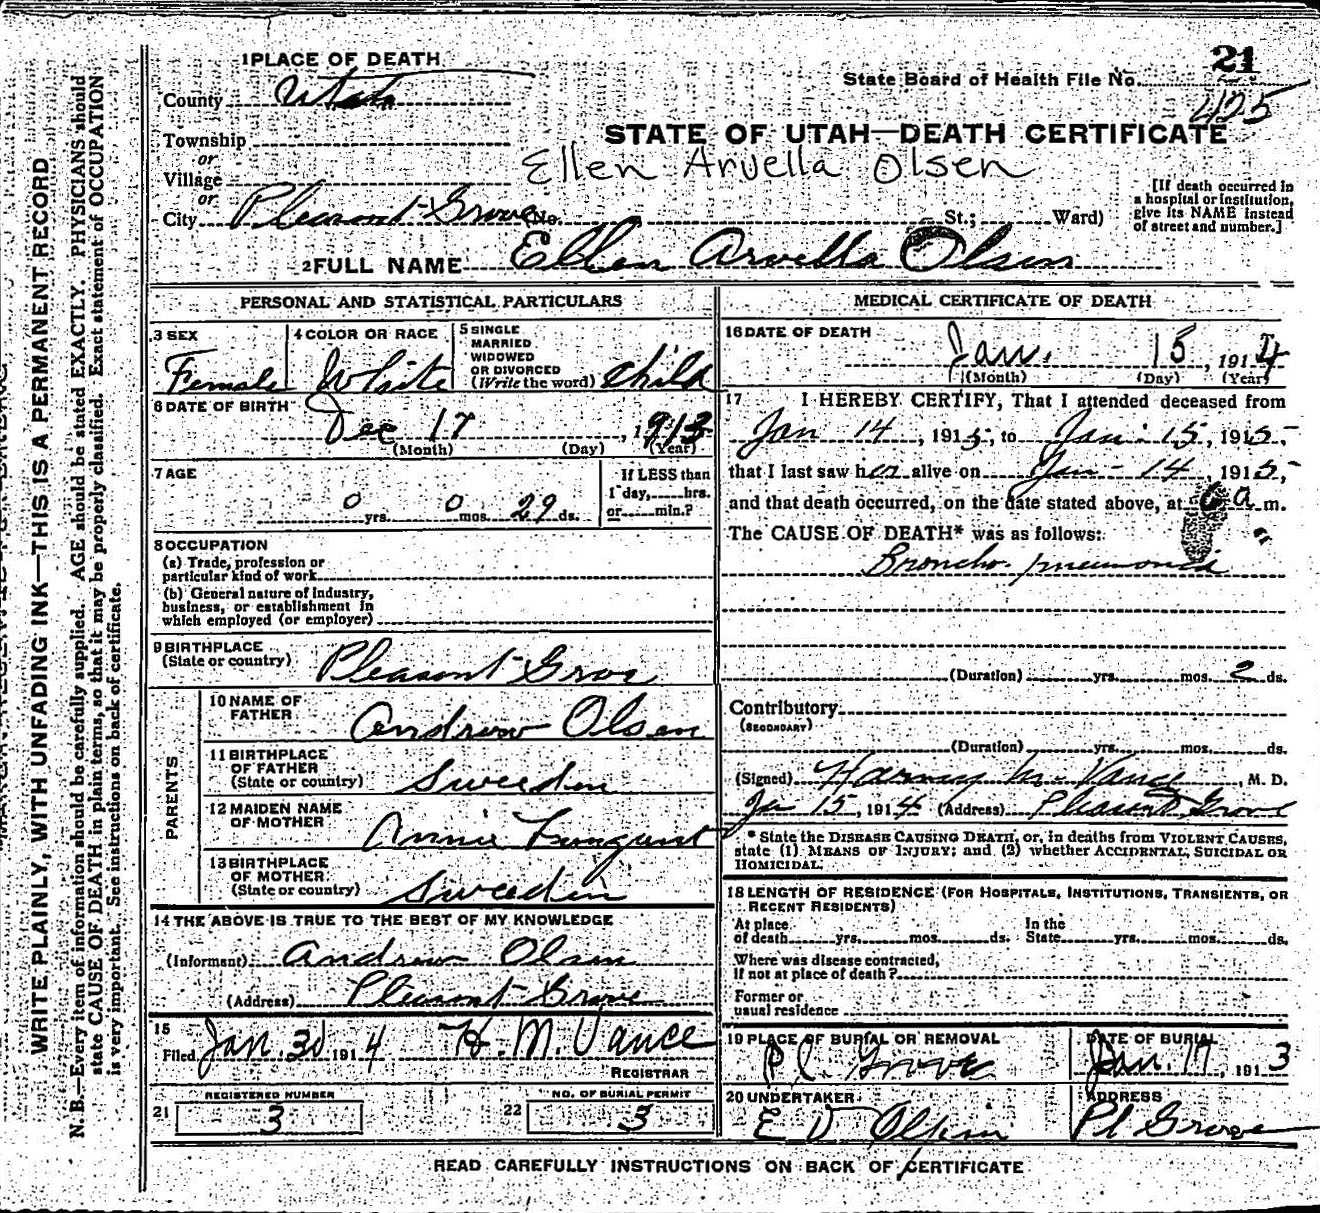 21
State Board of Health File No. 425
1 PLACE OF DEATH
County Utah
STATE OF UTAH—DEATH CERTIFICATE
Township
or
Ellen Arvella Olsen
Village
or
City Pleasant Grove (No. St.; Ward)
[If death occurred in a hospital or institution, give its NAME instead of street and number.]
2 FULL NAME Ellen Arvella Olsen
PERSONAL AND STATISTICAL PARTICULARS
3 SEX
Female
4 COLOR OR RACE
White
5 SINGLE
MARRIED
WIDOWED
OR DIVORCED
(Write the word) Child
6 DATE OF BIRTH
Dec 17, 1913
(Month) (Day) (Year)
7 AGE
0 yrs. 0 mos. 29 ds.
If LESS than
1 day, hrs.
or min.?
8 OCCUPATION
(a) Trade, profession or
particular kind of work
(b) General nature of industry,
business, or establishment in
which employed (or employer)
9 BIRTHPLACE
(State or country) Pleasant Grov
PARENTS
10 NAME OF
FATHER Andrew Olsen
11 BIRTHPLACE
OF FATHER
(State or country) Sweeden
12 MAIDEN NAME
OF MOTHER Annie
13 BIRTHPLACE
OF MOTHER
(State or country) Sweeden
14 THE ABOVE IS TRUE TO THE BEST OF MY KNOWLEDGE
(Informant) Andrew Olsen
(Address) Pleasant Grove
15
Filed Jan 30 1914 H. M. Vance
REGISTRAR
REGISTERED NUMBER
21 3
NO. OF BURIAL PERMIT
22 3
MEDICAL CERTIFICATE OF DEATH
16 DATE OF DEATH
Jan. 15, 1914
(Month) (Day) (Year)
17 I HEREBY CERTIFY, That I attended deceased from
Jan 14, 1915, to Jan. 15, 1915,
that I last saw her alive on Jan - 14, 1915,
and that death occurred, on the date stated above, at 6 a m.
The CAUSE OF DEATH* was as follows:
Broncho. pneumonia
(Duration) yrs. mos. 2 ds.
Contributory
(SECONDARY)
(Duration) yrs. mos. ds.
(Signed) M. Vance, M. D.
Ja 15, 1914 (Address) Pleasant Grove
* State the DISEASE CAUSING DEATH, or, in deaths from VIOLENT CAUSES,
state (1) MEANS OF INJURY; and (2) whether ACCIDENTAL, SUICIDAL OR
HOMICIDAL.
18 LENGTH OF RESIDENCE (FOR HOSPITALS, INSTITUTIONS, TRANSIENTS, OR
RECENT RESIDENTS)
At place
of death yrs. mos. ds.
In the
State yrs. mos. ds.
Where was disease contracted,
if not at place of death?
Former or
usual residence
19 PLACE OF BURIAL OR REMOVAL
Pl. Grove
DATE OF BURIAL
Jan. 17, 1913
20 UNDERTAKER
E D Olpin
ADDRESS
Pl Grove
READ CAREFULLY INSTRUCTIONS ON BACK OF CERTIFICATE
WRITE PLAINLY, WITH UNFADING INK—THIS IS A PERMANENT RECORD
N. B.—Every item of information should be carefully supplied. AGE should be stated EXACTLY. PHYSICIANS should
state CAUSE OF DEATH in plain terms, so that it may be properly classified. Exact statement of OCCUPATION
is very important. See instructions on back of certificate.